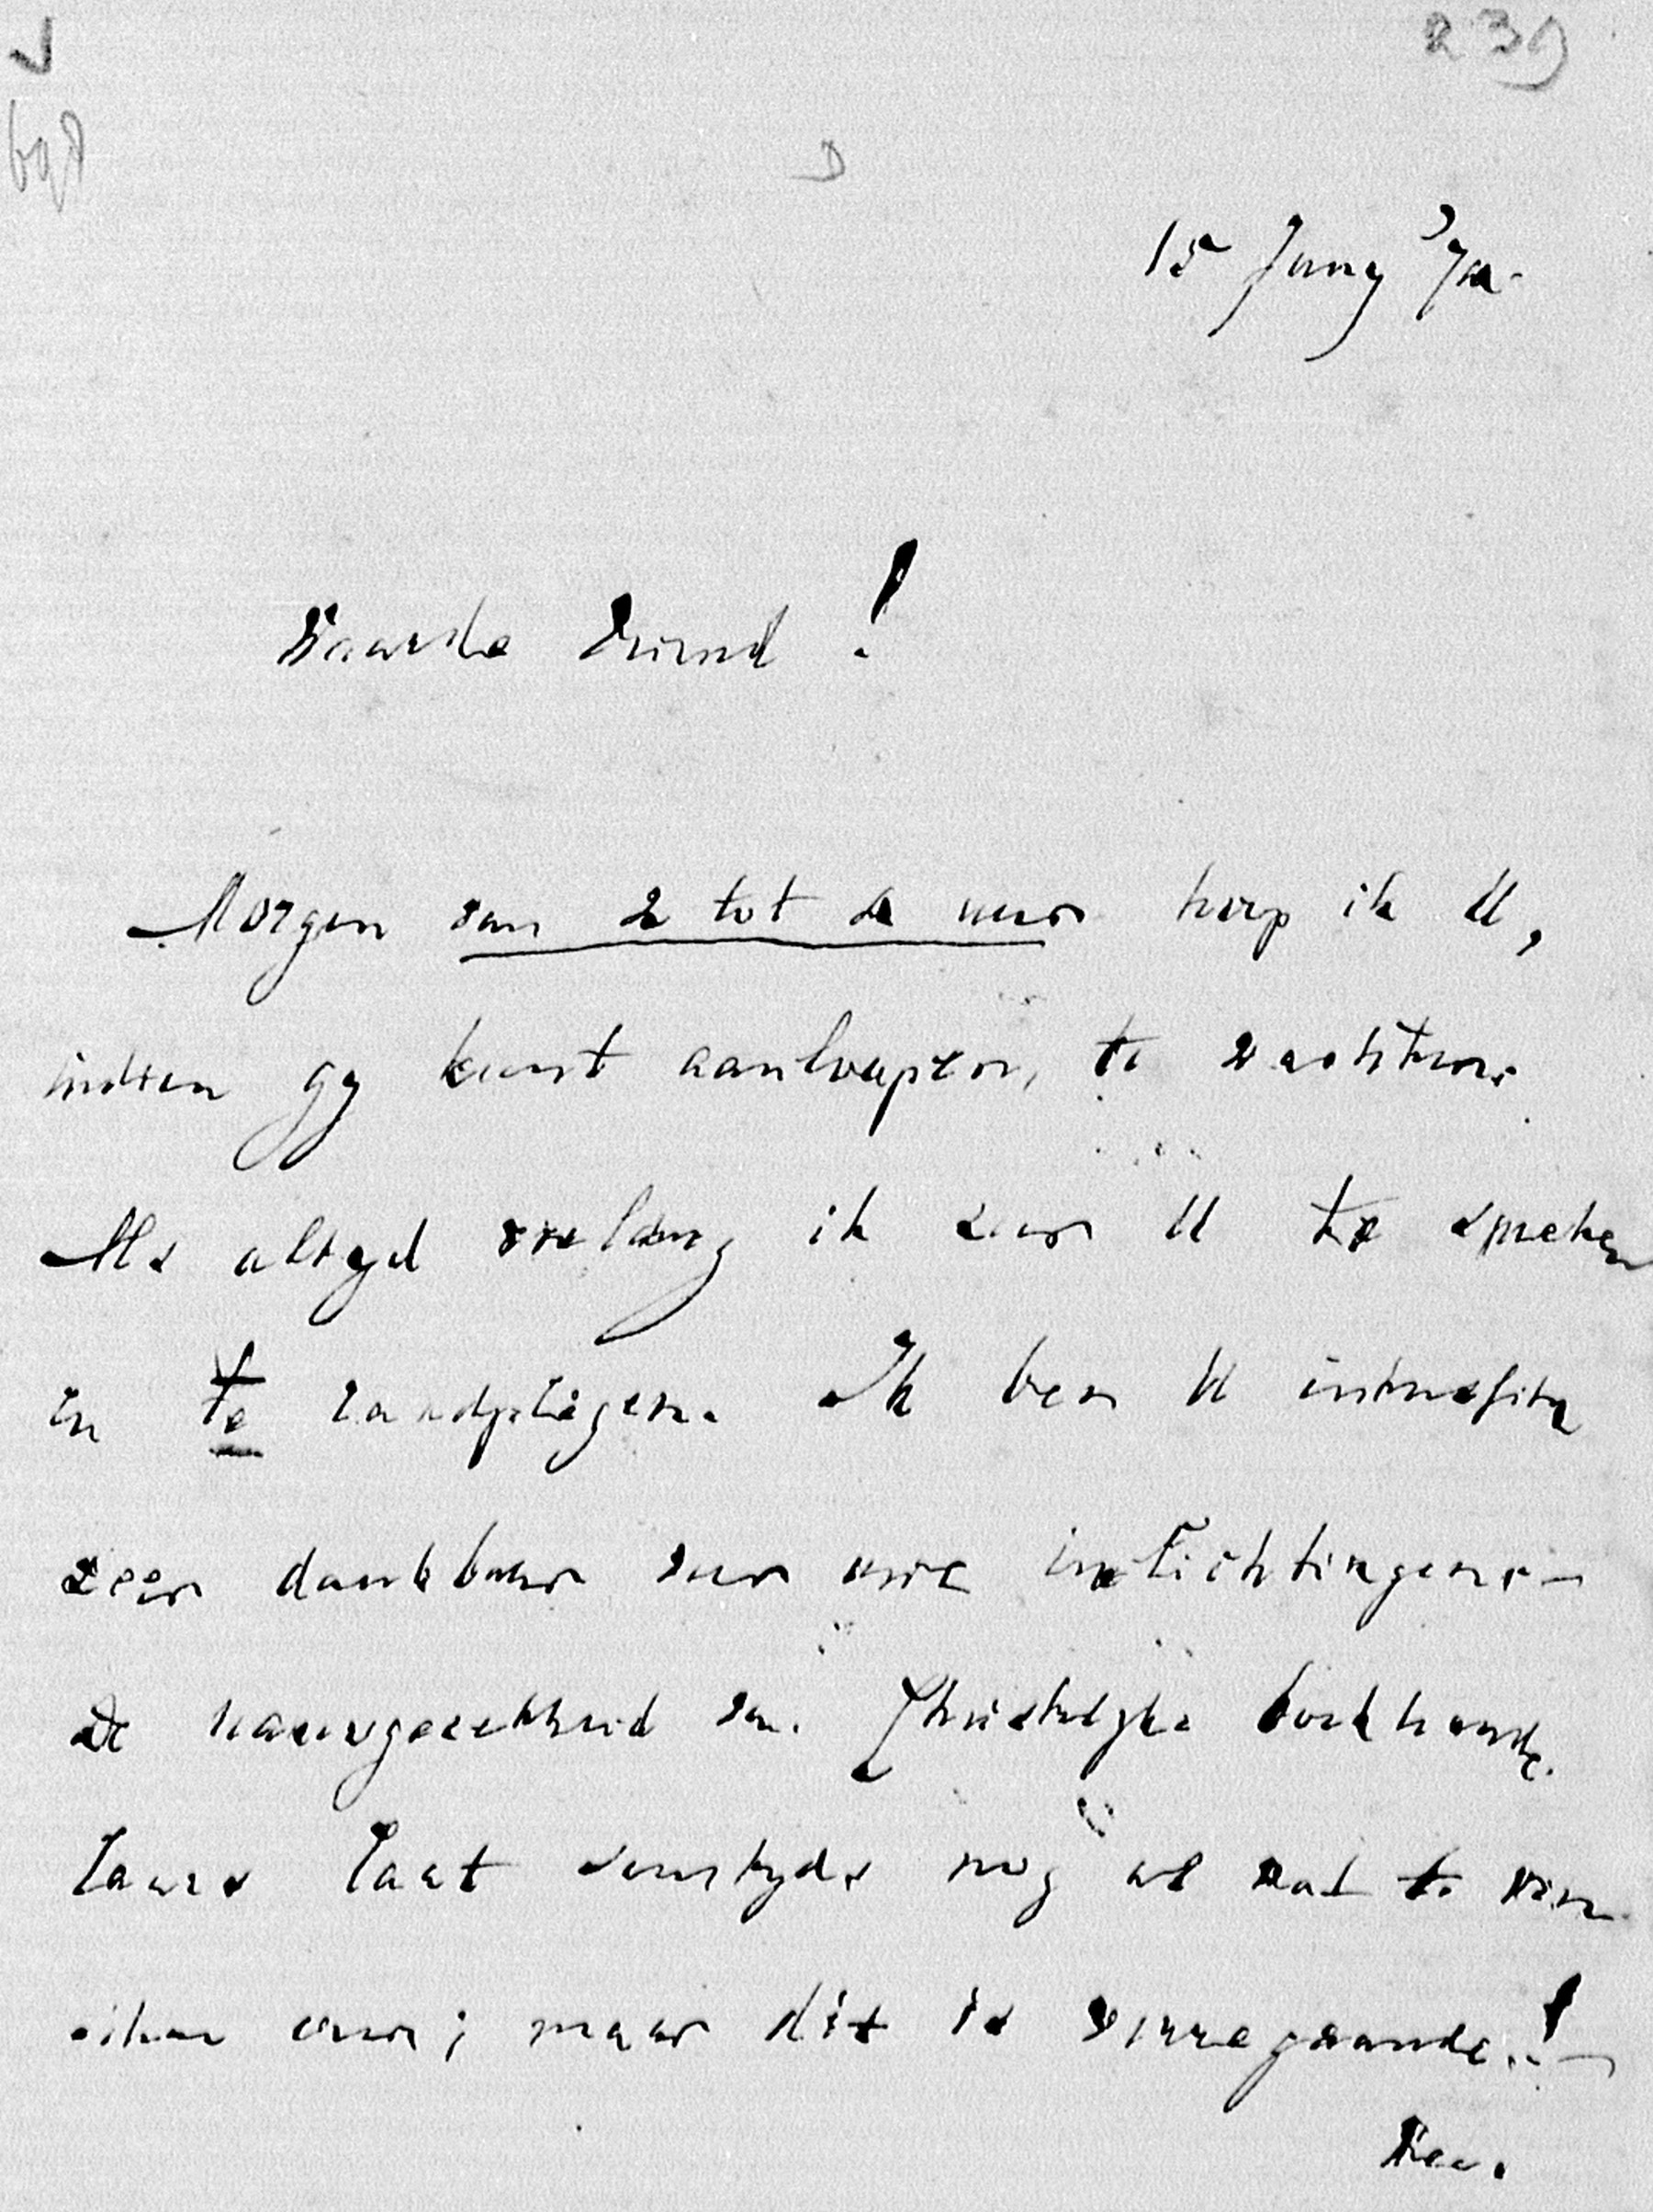 239
15 Juny '72.
Waarde Vriend!
Morgen van 2 tot 4 uur hoop ik U,
indien gy kunt aanloopen, te wachten.
Als altyd verlang ik zeer U te spreken
en te raadplegen. Ik ben U intusschen
zeer dankbaar voor uwe inlichtingen.—
De nauwgezetheid van Christelyke boekhande-
laars laat somtyds nog al wat te wen-
schen over; maar dit is verregaande!—